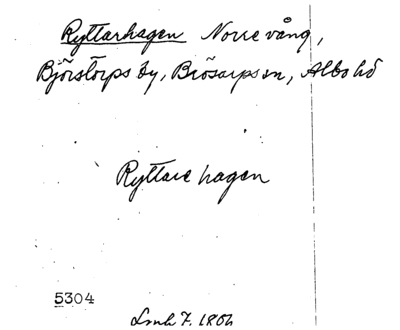 Ryttarhagen Norrevång,
Björstorps by, Brösarps sn, Albo hd
Ryttare hagen
5304
Lmk 7. 1806